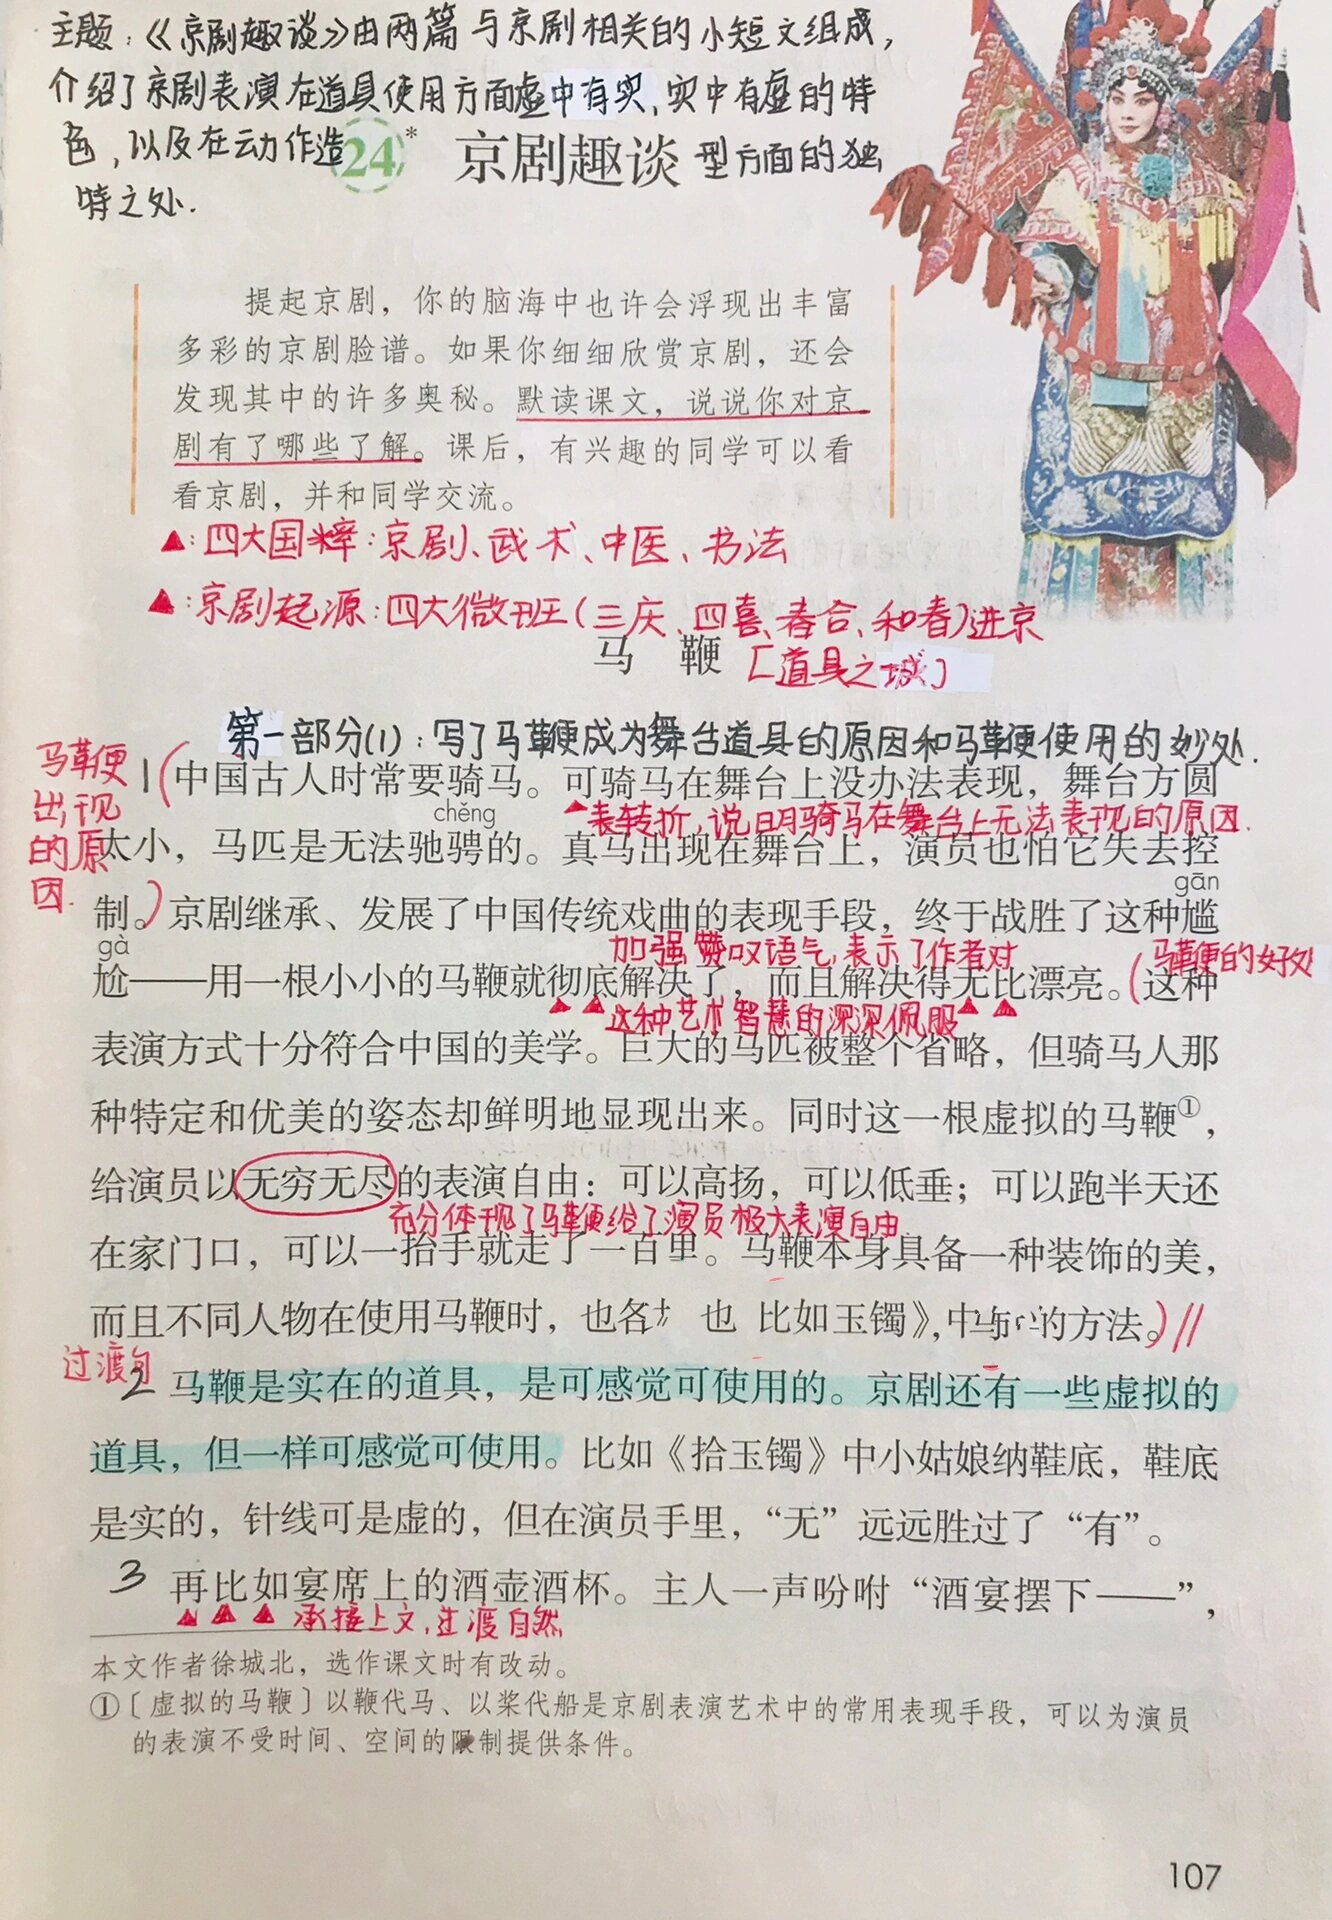 主题:《京剧趣谈》由两篇与京剧相关的小短文组成,
介绍了京剧表演在道具使用方面虚中有实,实中有虚的特
色,以及在动作造型方面的独
特之处.
24*
京剧趣谈
提起京剧，你的脑海中也许会浮现出丰富
多彩的京剧脸谱。如果你细细欣赏京剧，还会
发现其中的许多奥秘。默读课文，说说你对京
剧有了哪些了解。课后，有兴趣的同学可以看
看京剧，并和同学交流。
▲:四大国粹:京剧、武术、中医、书法
▲:京剧起源:四大微班(三庆、四喜、春合、和春)进京
马 鞭
[道具之城]
第一部分(1):写了马鞭成为舞台道具的原因和马鞭使用的妙处.
马鞭
出现
的原
因.
1(中国古人时常要骑马。可骑马在舞台上没办法表现，舞台方圆
chěng
▲表转折,说明骑马在舞台上无法表现的原因.
太小，马匹是无法驰骋的。真马出现在舞台上，演员也怕它失去控
gān
制。)京剧继承、发展了中国传统戏曲的表现手段，终于战胜了这种尴
gà
加强赞叹语气,表示了作者对
马鞭的好处
尬——用一根小小的马鞭就彻底解决了，而且解决得无比漂亮。(这种
▲▲这种艺术智慧的深深佩服▲▲
表演方式十分符合中国的美学。巨大的马匹被整个省略，但骑马人那
种特定和优美的姿态却鲜明地显现出来。同时这一根虚拟的马鞭①，
给演员以无穷无尽的表演自由：可以高扬，可以低垂；可以跑半天还
充分体现了马鞭给了演员极大表演自由
在家门口，可以一抬手就走了一百里。马鞭本身具备一种装饰的美，
而且不同人物在使用马鞭时，也各 也 比如玉镯》,中 的方法。)//
过渡句
2 马鞭是实在的道具，是可感觉可使用的。京剧还有一些虚拟的
道具，但一样可感觉可使用。比如《拾玉镯》中小姑娘纳鞋底，鞋底
是实的，针线可是虚的，但在演员手里，“无”远远胜过了“有”。
3 再比如宴席上的酒壶酒杯。主人一声吩咐“酒宴摆下——”，
▲▲▲承接上文,过渡自然
本文作者徐城北，选作课文时有改动。
①〔虚拟的马鞭〕以鞭代马、以桨代船是京剧表演艺术中的常用表现手段，可以为演员
的表演不受时间、空间的限制提供条件。
107